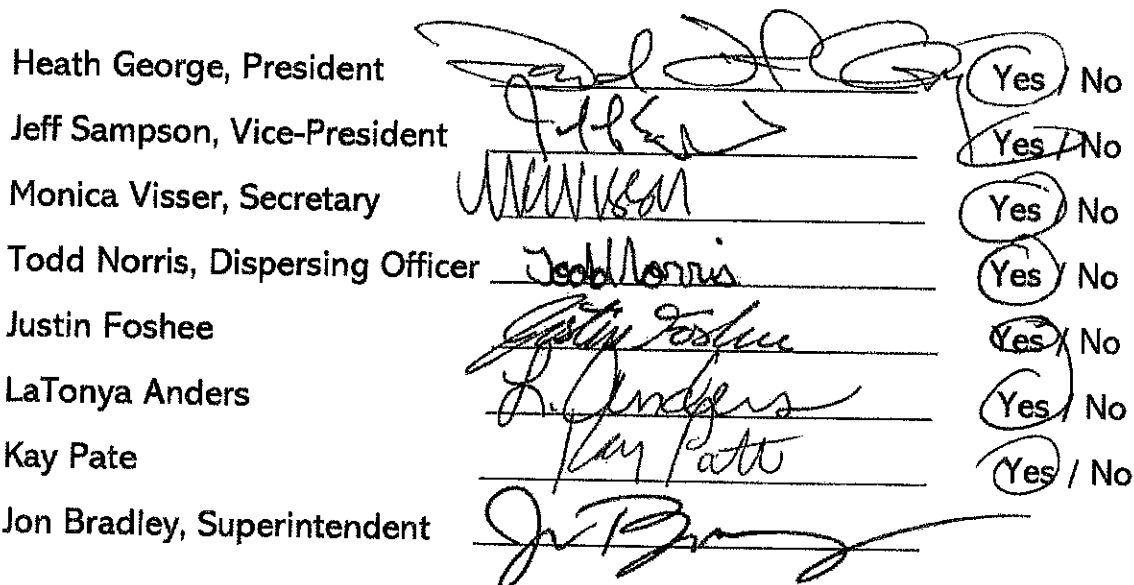 Heath George, President Yes / No
Jeff Sampson, Vice-President Yes / No
Monica Visser, Secretary Yes / No
Todd Norris, Dispersing Officer Todd Norris Yes / No
Justin Foshee Justin Foshee Yes / No
LaTonya Anders L. Anders Yes / No
Kay Pate Kay Pate Yes / No
Jon Bradley, Superintendent